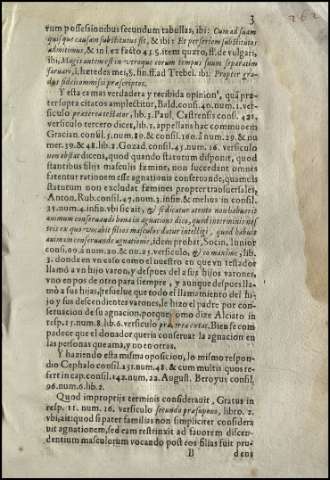 3
262
rum possessionibus secundum tabullas, ibi: Cum ad suam
quisque causam substitutus sit, & ibi: Et per seriem substitutus
admittimus, & in l. ex facto 45. §. item quæro, ff. de vulgari,
ibi, Magis autem est in vtroque eorum tempus suum separatim
seruari, l. hæredes mei, §. fin. ff. ad Trebel. ibi. Propter gra-
dus fideicommissi præscriptos.
Y esta es mas verdadera y recibida opinion, quā præ-
ter supra citatos amplectitur, Bald. cons. 40. num. 1. ver-
siculo præterea testatur, lib. 3. Paul. Castrensis cons. 421.
versiculo tercero dicet, lib. 1. appellans hac communem
Gracian. consil. 5. num. 80. & consil. 160. à num. 29. & nu
mer. 39. & 48. lib. 2. Gozad. consil. 45. num. 16. versiculo
non obstat dicens, quod quando statutum disponit, quod
stantibus filijs masculis fæminæ, non succedant omnes
fatentur rationem esse agnationis conseruandæ, quamuis
statutum non excludat fæmines propter transuersales,
Anton. Rub. consil. 47. num. 3. in fin. & melius in consil.
25. num. 4. in fin. vbi sic ait, & sic dicatur attente nobilioribus
animum conseruandi bona in agnatione dico, quod in terminis nos-
tris ex quo vocabit filios masculos datur intelligi, quod habuit
animum conseruandæ agnationis, idem probat, Socin. Iunior
consi. 60. à num. 20. & nu. 25. versiculo, & eo maxime, lib.
3. donde en vn caso como el nuestro en que vn testador
llamò a vn hijo varon, y despues del a sus hijos varones,
vno en pos de otro para siempre, y aunque despues lla-
mò a sus hijas, resuelue que todo el llamamiento del hi-
jo y sus descendientes varones, le hizo el padre por con-
seruacion de su agnacion, porque como dize Alciato in
resp. 15. num. 8. lib. 6. versiculo præterea curat. Bien se com
padece que el donador queria conseruar la agnacion en
las personas que ama, y no en otras.
Y haziendo esta misma oposicion, lo mismo respon-
dio Cephalo consil. 151. num. 48. & cum multis quos re-
fert in cap. consil. 142. num. 22. August. Beroyus consil.
96. num. 6. lib. 2.
Quod improprijs terminis considerauit, Gratus in
resp. 11. num. 16. versiculo secundo præsupono, libro. 2.
vbi, ait: quod si pater familias non simpliciter considera
uit agnationem, sed eam restrinxit ad fauorem discen-
dentium masculorum vocando post eos filias fuit pru-
B
dens